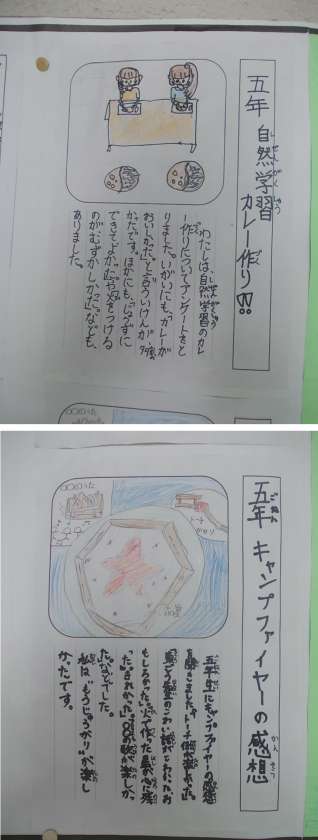 五年 自然学習
カレー作り!!
わたしは、自然学習のカレ
ー作りについてアンケートをと
りました。いがいにも、「カレーが
おいしかった」と言ういけんが多
かったです。ほかにも、「じょうずに
できてよかった」や「火をつける
のがむずかしかった」なども、
ありました。
五年 キャンプファイヤーの感想
トーチ
五年生にキャンプファイヤーの感想
を聞きました。「トーチ係が楽しかった」
もしろかった」「火で作った星が心に残
った」「きれかった」「〇〇の歌が楽しかっ
た」などでした。
私は「もうじゅうがり」が楽し
かったです。